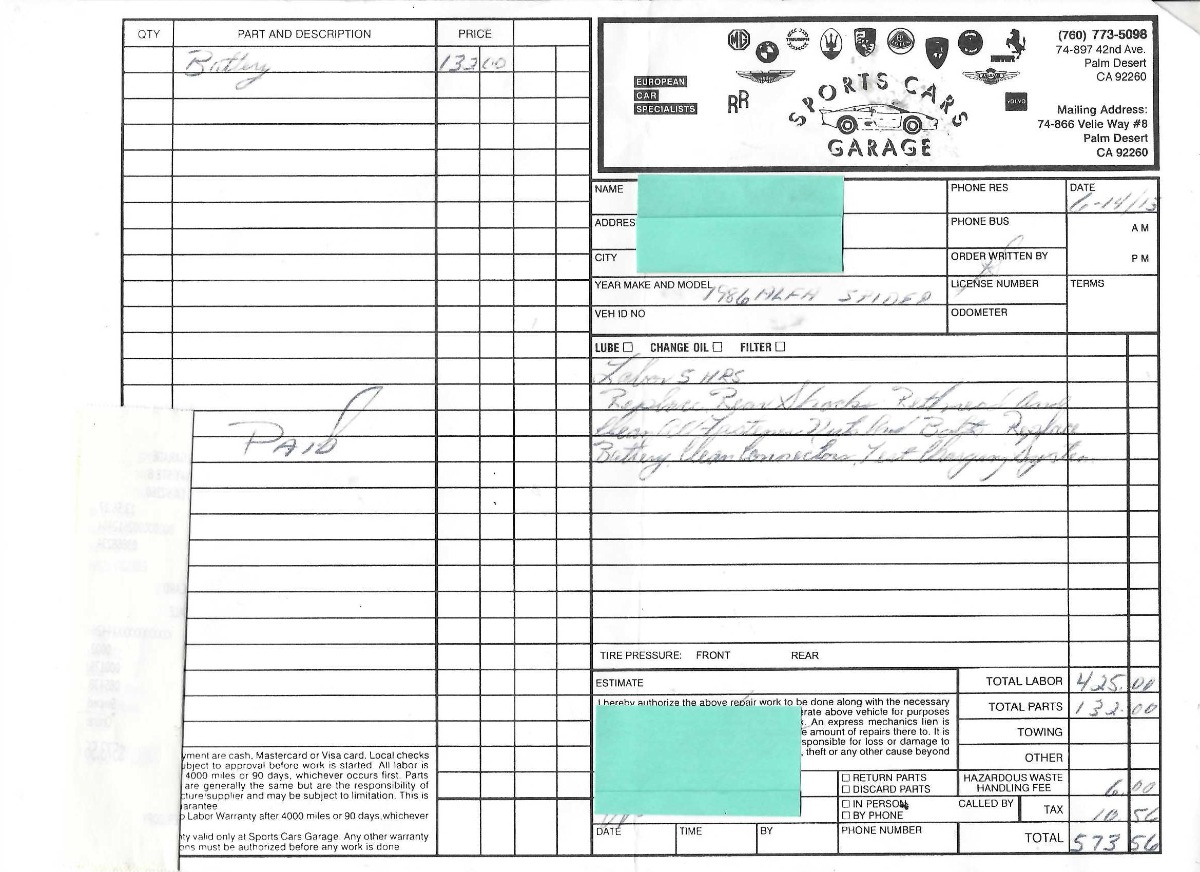 QTY PART AND DESCRIPTION PRICE
Battery 132 00
PAID
yment are cash, Mastercard or Visa card. Local checks
ubject to approval before work is started. All labor is
4000 miles or 90 days, whichever occurs first. Parts
are generally the same but are the responsibility of
cture/supplier and may be subject to limitation. This is
arantee
Labor Warranty after 4000 miles or 90 days, whichever
ty valid only at Sports Cars Garage. Any other warranty
ons must be authorized before any work is done.
EUROPEAN
CAR
SPECIALISTS
MG
TRIUMPH
Ferrari
RR
VOLVO
SPORTS CARS
GARAGE
(760) 773-5098
74-897 42nd Ave.
Palm Desert
CA 92260
Mailing Address:
74-866 Velie Way #8
Palm Desert
CA 92260
NAME PHONE RES DATE
6-14/13
ADDRES PHONE BUS A M
CITY ORDER WRITTEN BY P M
YEAR MAKE AND MODEL 1986 ALFA SPIDER LICENSE NUMBER TERMS
VEH ID NO ODOMETER
LUBE ☐ CHANGE OIL ☐ FILTER ☐
Labor 5 HRS
Replace Rear Shocks Rethread And
Clean All Nuts And Bolts, Replace
Battery, Clean Connectors, Test Charging System
TIRE PRESSURE: FRONT REAR
ESTIMATE
I hereby authorize the above repair work to be done along with the necessary
erate above vehicle for purposes
. An express mechanics lien is
e amount of repairs there to. It is
sponsible for loss or damage to
, theft or any other cause beyond
TOTAL LABOR 425.00
TOTAL PARTS 132.00
TOWING
OTHER
☐ RETURN PARTS
☐ DISCARD PARTS
HAZARDOUS WASTE
HANDLING FEE 6.00
☐ IN PERSON
☐ BY PHONE
CALLED BY TAX 10 56
DATE TIME BY PHONE NUMBER TOTAL 573 56